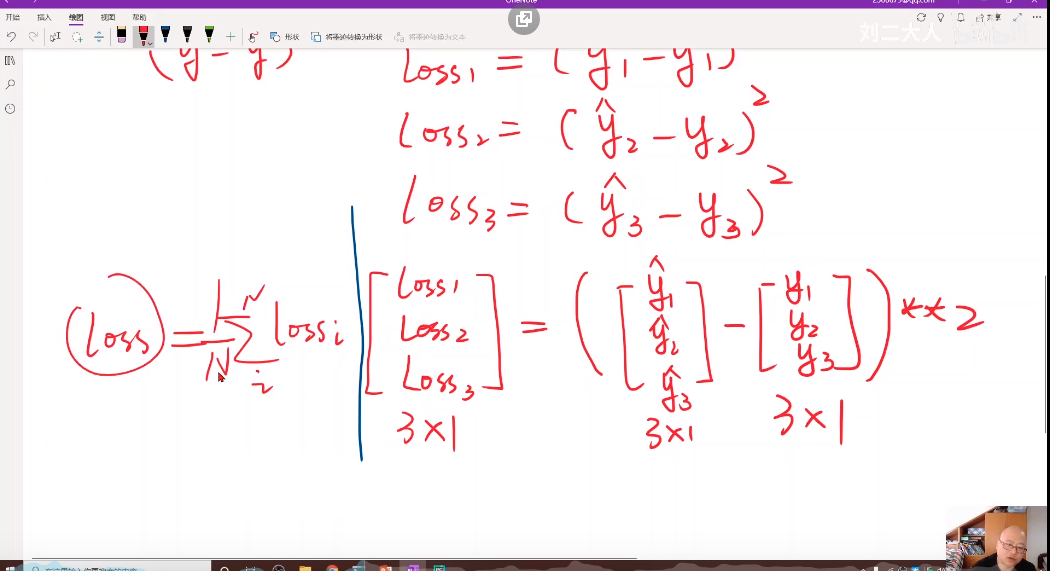 OneNote
开始 插入 绘图 视图 帮助
形状 将墨迹转换为形状 将墨迹转换为文本 共享
刘二大人
(ŷ − y)
Loss1 = (ŷ1 − y1)
Loss2 = (ŷ2 − y2)²
Loss3 = (ŷ3 − y3)²
Loss = 1/N ∑ᵢᴺ Lossi
[Loss1 Loss2 Loss3] = ([ŷ1 ŷ2 ŷ3] − [y1 y2 y3]) **2
3×1 3×1 3×1